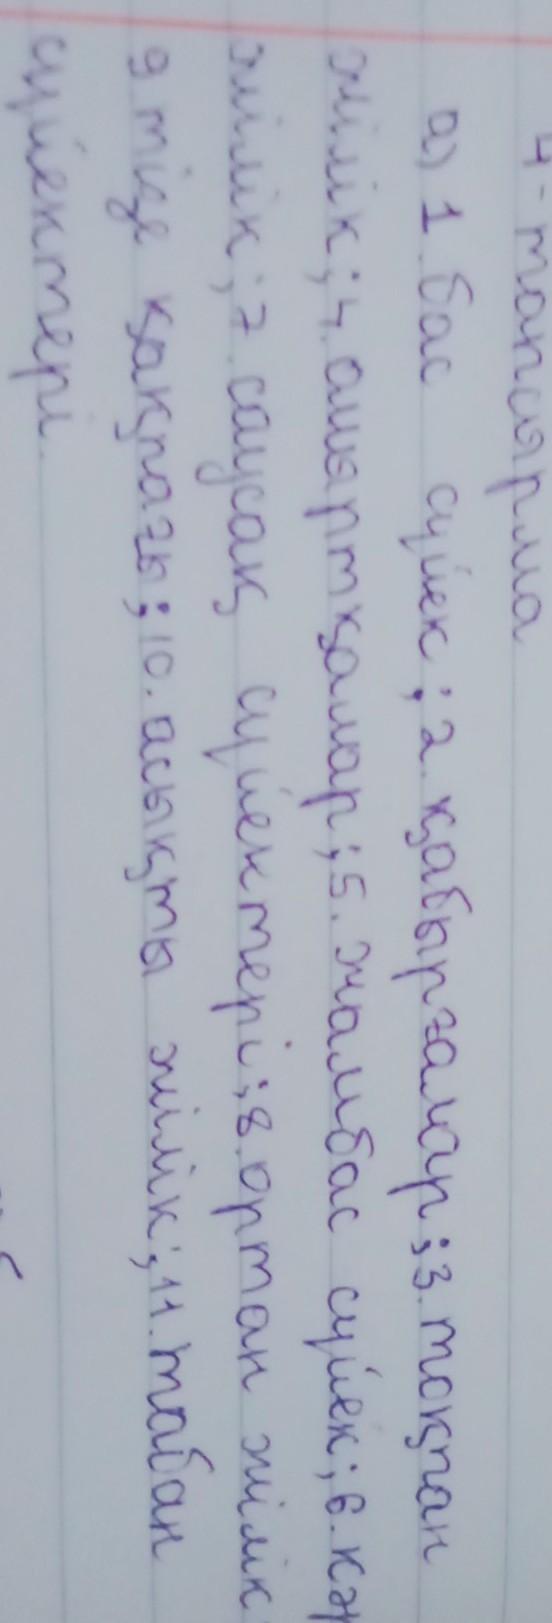 4-тапсырма
а) 1. бас сүйек; 2. қабырғалар; 3. тоқпан
жілік; 4. омыртқалар; 5. жамбас сүйек; 6. кәр
жілік; 7. саусақ сүйектері; 8. ортан жілік
9 тізе қақпағы; 10. асықты жілік; 11. табан
сүйектері.